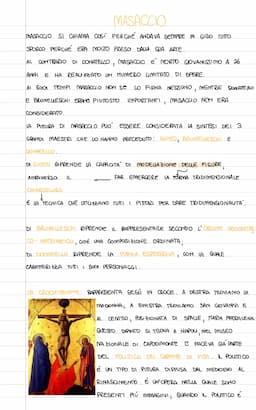 MASACCIO
MASACCIO SI CHIAMA COSÌ PERCHÉ ANDAVA SEMPRE IN GIRO TUTTO
SPORCO PERCHÉ ERA MOLTO PRESO DALLA SUA ARTE.
AL CONTRARIO DI DONATELLO, MASACCIO È MORTO GIOVANISSIMO A 26
ANNI E HA REALIZZATO UN NUMERO LIMITATO DI OPERE.
AI SUOI TEMPI MASACCIO NON DE LO FILAVA NESSUNO, MENTRE DONATELLO
E BRUNELLESCHI ERANO PIUTTOSTO IMPORTANTI, MASACCIO NON ERA
CONSIDERATO.
LA PITTURA DI MASACCIO PUÒ ESSERE CONSIDERATA LA SINTESI DEI 3
GRANDI MAESTRI CHE LO HANNO PRECEDUTO: GIOTTO, BRUNELLESCHI E
DONATELLO.
DI GIOTTO RIPRENDE LA CAPACITÀ DI MODELLAZIONE DELLE FIGURE,
ATTRAVERSO IL FAR EMERGERE LA FORMA TRIDIMENSIONALE
CHIAROSCURO
È LA TECNICA CHE UTILIZZANO TUTTI I PITTORI PER DARE TRIDIMENSIONALITÀ.
DI BRUNELLESCHI RIPRENDE IL RAPPRESENTARE SECONDO L'ORDINE GEOMETRI-
CO - MATEMATICO, CON UNA COMPOSIZIONE ORDINATA;
DI DONATELLO RIPRENDE LA FORZA ESPRESSIVA, CON LA QUALE
CARATTERIZZA TUTTI I SUOI PERSONAGGI.
LA CROCIFISSIONE: RAPPRESENTA GESÙ IN CROCE. A DESTRA TROVIAMO LA
MADONNA, A SINISTRA TROVIAMO SAN GIOVANNI E
AL CENTRO, POSIZIONATA DI SPALLE, MARIA MADDALENA.
QUESTO DIPINTO SI TROVA A NAPOLI, NEL MUSEO
NAZIONALE DI CAPODIMONTE E FACEVA GIÀ PARTE
DEL POLITTICO DEL CARMINE DI PISA. IL POLITTICO
È UN TIPO DI PITTURA DIFFUSA DAL MEDIOEVO AL
RINASCIMENTO. È UN'OPERA NELLA QUALE SONO
PRESENTI PIÙ IMMAGINI, QUANDO IL POLITTICO È